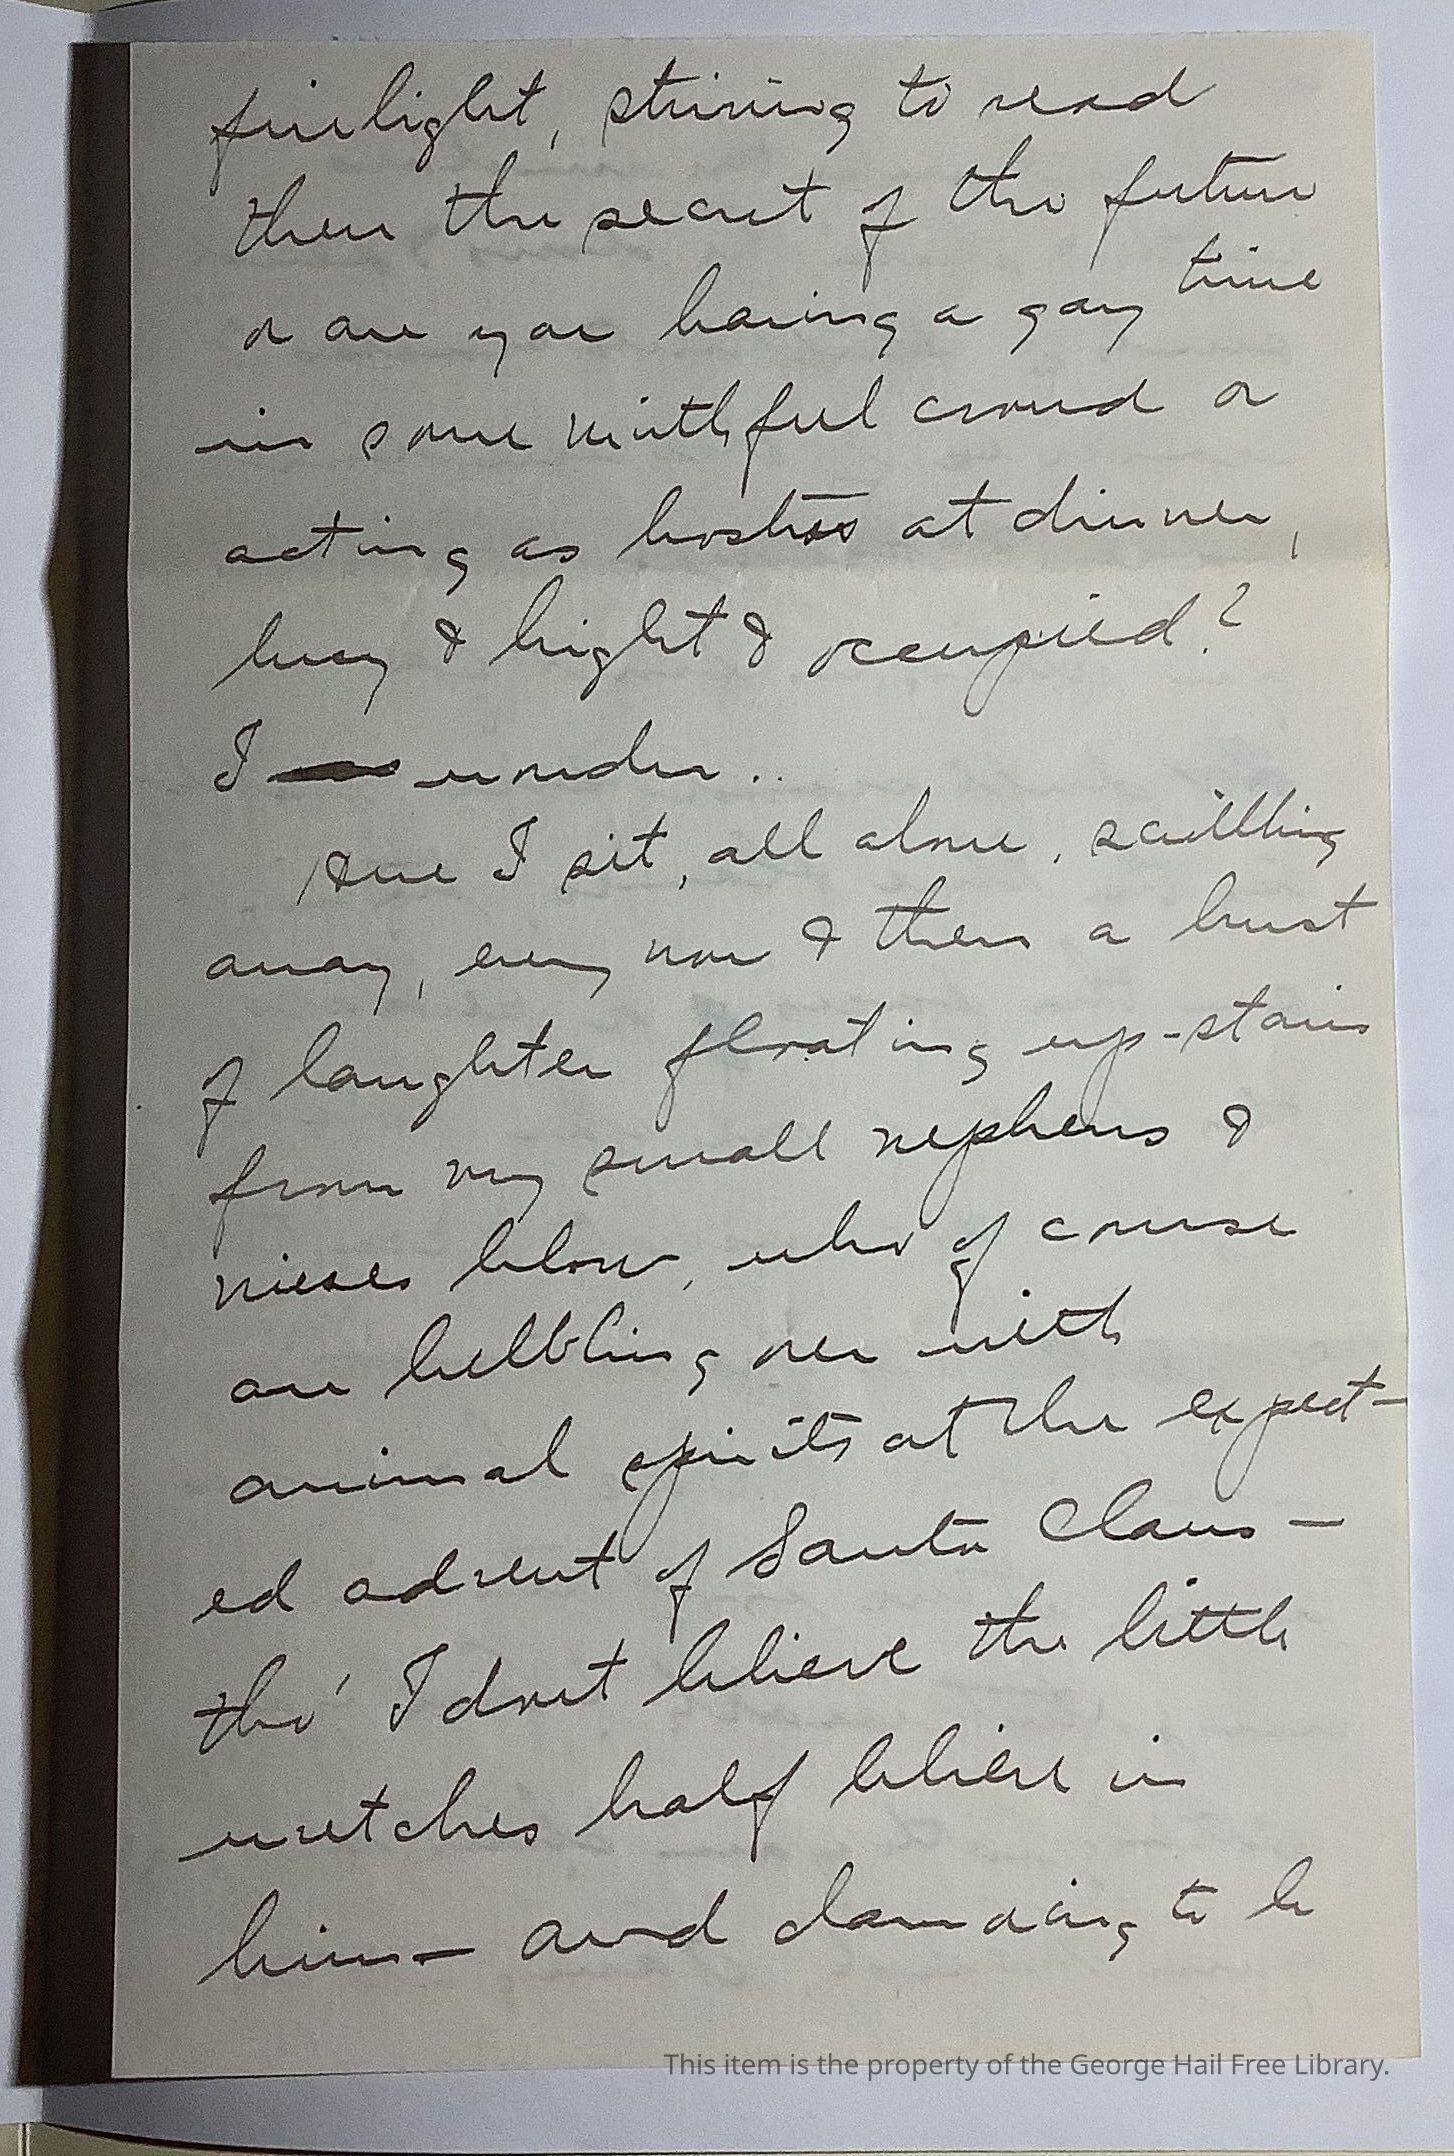 firelight, striving to read
there the secret of the future
or are you having a gay time
in some mirthful crowd or
acting as hostess at dinner,
busy & bright & occupied?
I wonder..
Here I sit, all alone, scribbling
away, every now & then a burst
of laughter floating up-stairs
from my small nephews &
nieces below, who of course
are bubbling over with
animal spirits at the expect-
ed advent of Santa Claus —
tho' I dont believe the little
wretches half believe in
him — and clamoring to be
This item is the property of the George Hail Free Library.